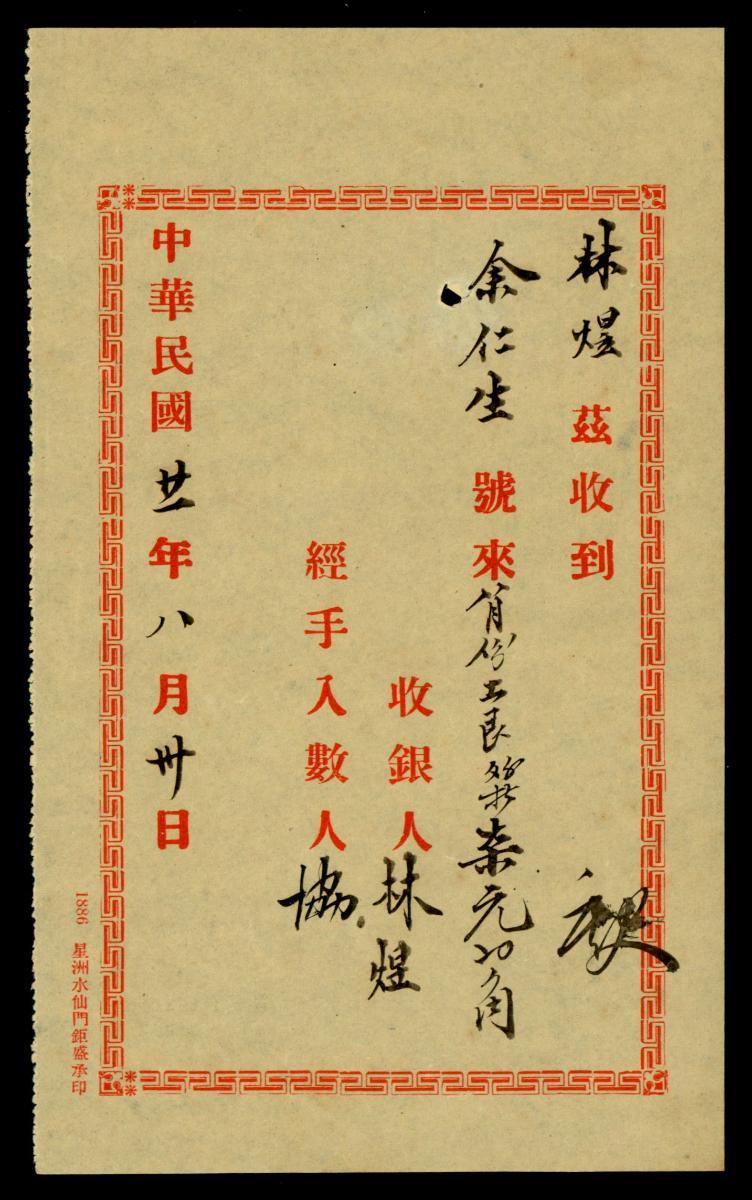 林煜 茲收到
余仁生 號來 份工艮 柒元 角
收銀人 林煜
經手入數人 協
中華民國廿一年八月卅日
1886 星洲水仙門鉅盛承印